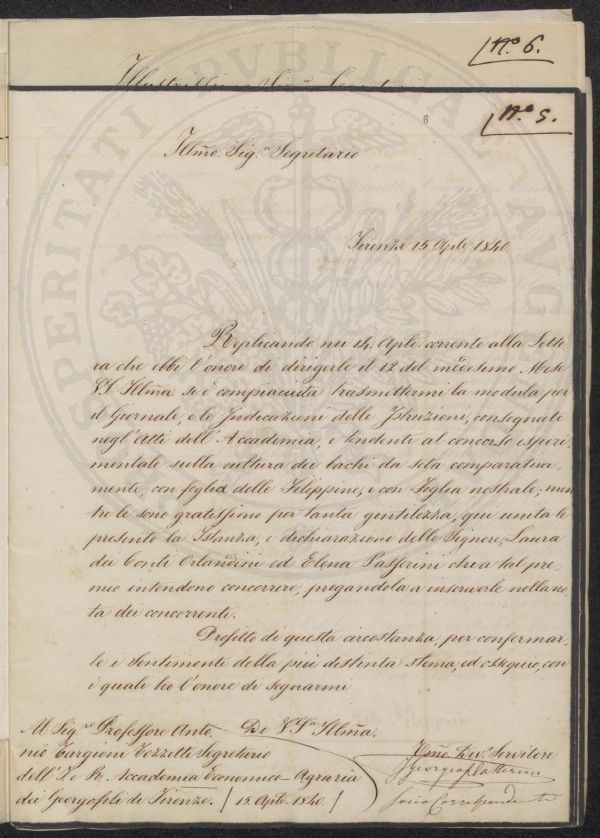 N.o 6.
N.o 5.
6
Illmo. Sig.re Segretario
Firenze 15 Aple 1840.
Replicando nei 14. Aple. corrente alla Lette
ra che ebbi l'onore di dirigerle il 12 del medesimo Mese
VS. Illma si è compiaciuta trasmettermi la modula per
il Giornale, e le Indicazioni delle Istruzioni, consegnate
negl'Atti dell'Accademia, e tendente al concorso esperi=
mentale sulla cultura dei bachi da seta comparativa=
mente, con foglia delle Filippine, e con Foglia nostrale; men
tre le sono gratissimo per tanta gentilezza, qui unita le
presento la Istanza, e dichiarazione delle Signore, Laura
dei Conti Orlandini ed Elena Passerini che a tal pre=
mio intendono concorrere, pregandola a inscriverle nella no
ta dei concorrenti.
Profitto di questa circostanza, per confermar=
le i Sentimenti della più distinta stima, ed ossequio, con
i quali ho l'onore di segnarmi
Di VS. Illma.
Al Sig.re Professore Anto=
nio Targioni Tozzetti Segretario
dell'I. e R. Accademia Economico=Agraria
dei Georgofili di Firenze. / 15. Aple. 1840. /
Umo. Dev. Servitore
Socio Corrispondente
PROSPERITATI PUBLICAE AUG